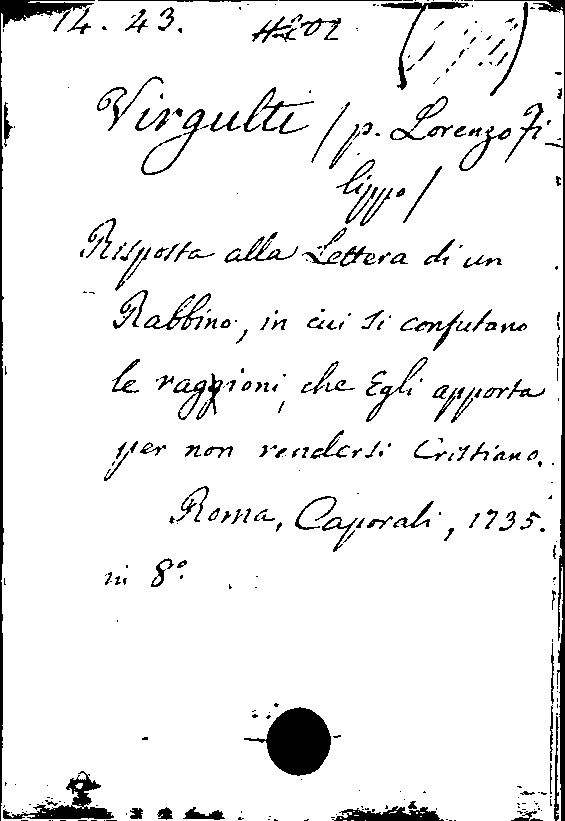 14. 43.
Virgulti / p. Lorenzo Fi
lippo /
Risposta alla Lettera di un
Rabbino, in cui si confutano
le raggioni, che Egli apporta
per non rendersi Cristiano.
Roma, Caporali, 1735.
in 8°.